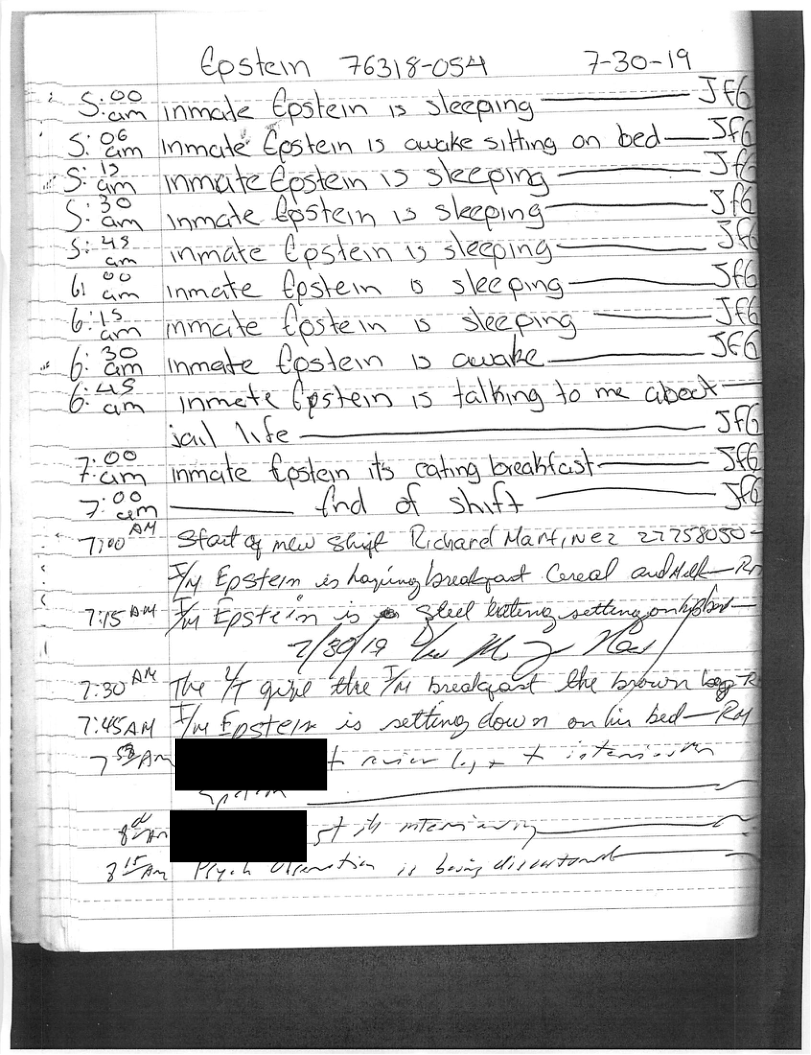 Epstein 76318-054 7-30-19
5:00 am inmate Epstein is sleeping JfG
5:06 am inmate Epstein is awake sitting on bed JfG
5:15 am inmate Epstein is sleeping JfG
5:30 am inmate Epstein is sleeping JfG
5:45 am inmate Epstein is sleeping JfG
6:00 am inmate Epstein is sleeping JfG
6:15 am inmate Epstein is sleeping JfG
6:30 am inmate Epstein is awake JfG
6:45 am inmate Epstein is talking to me about
jail life JfG
7:00 am inmate Epstein its eating breakfast JfG
7:00 am End of shift JfG
7:00 AM Start of new shift Richard Martinez 27758050
I/M Epstein is having breakfast Cereal and Milk RM
7:15 AM I/M Epstein is steel eating setting on his bed
7/30/19
7:30 AM The I/M breakfast the brown bag R
7:45 AM I/M Epstein is setting down on his bed RM
7 AM review log + interview
Epstein
8 AM interviewing
8 15 AM Psych Observation is being discontinued